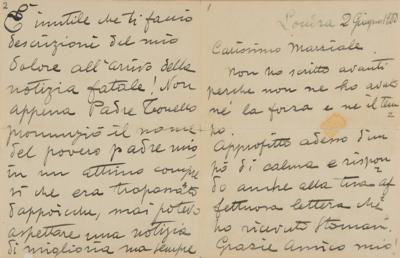 1
Londra 2 Giugno
Carissimo Marziale.
Non ho scritto avanti
perche non ne ho avuto
né la forza e né il tem
po
Approfitto adesso d'un
pò di calma e rispon
do anche alla tua af
fettuosa lettera che
ho ricevuto Stamani.
Grazie Amico mio!
2
E' inutile che ti faccio
descrizione del mio
dolore all'arrivo della
notizia fatale! Non
appena Padre Tonello
pronunziò il nome
del povero padre mio
in un attimo compre
si che era trapassato
dappoiche, mai potevo
aspettare una notizia
di miglioria ma sempre